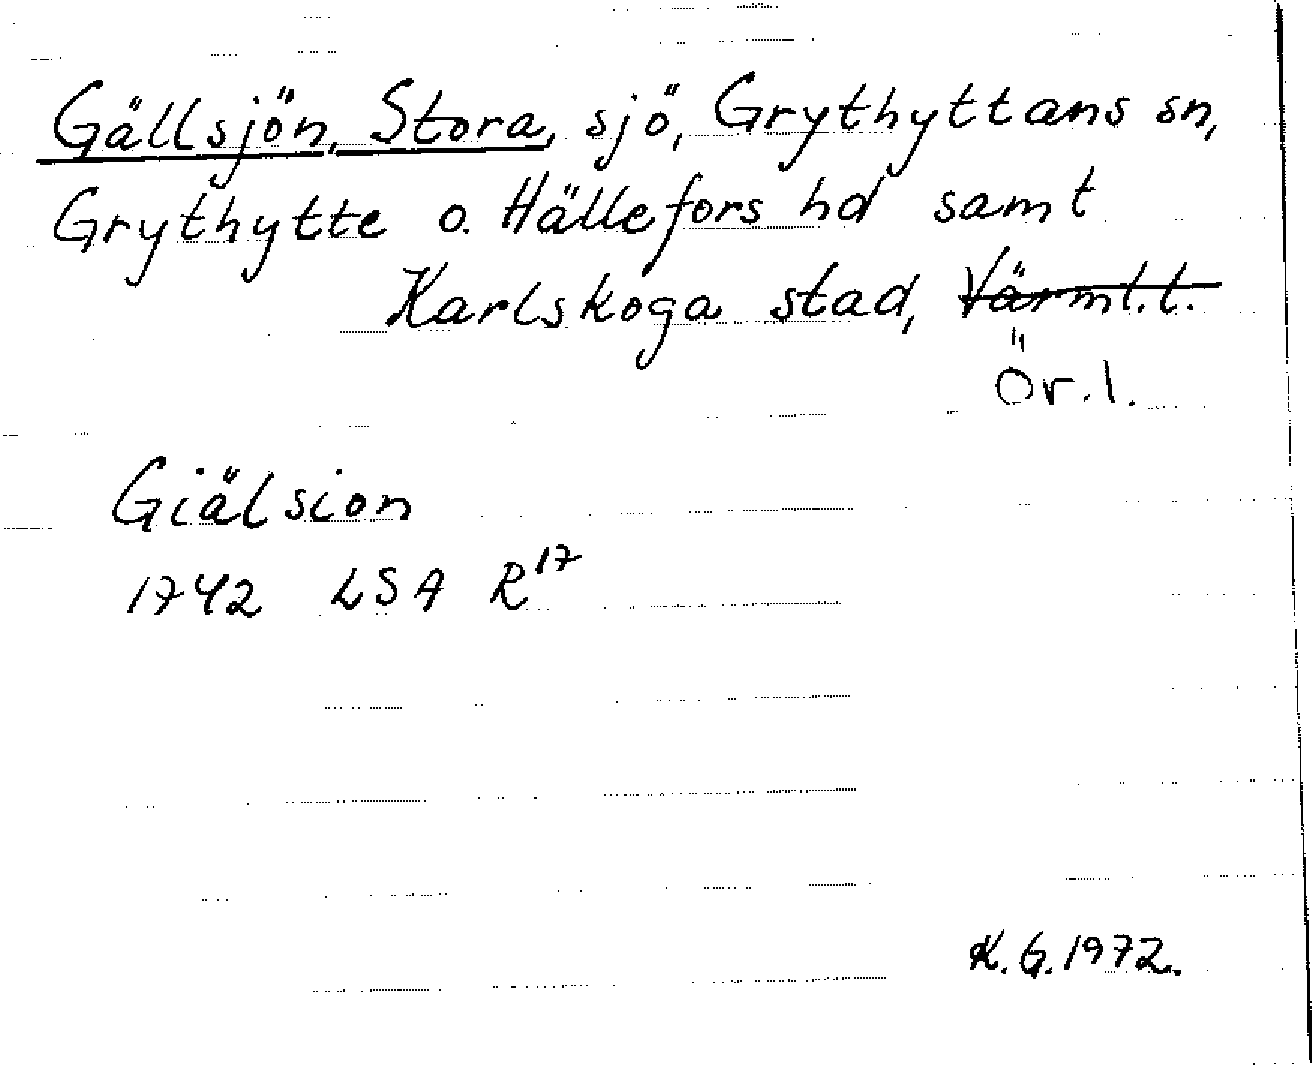 Gällsjön, Stora, sjö, Grythyttans sn,
Grythytte o. Hällefors hd samt
Karlskoga stad, Värml.l.
Ör.l.
Giälsion
1742 LSA R17
K.G.1972.